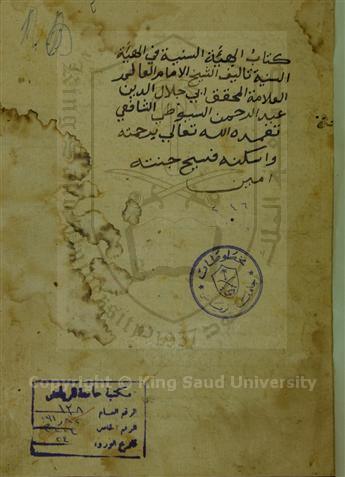 كتاب الهيئة السنية في الهيئة
السنية تاليف الشيخ الامام العالم
العلامة المحقق ابي جلال الدين
عبد الرحمن السيوطي الشافعي
تغمده الله تعالى برحمته
واسكنه فسيح جنته
امين
مخطوطات
Copyright © King Saud University
مكتبة جامعة الرياض
الرقم العام
الرقم الخاص